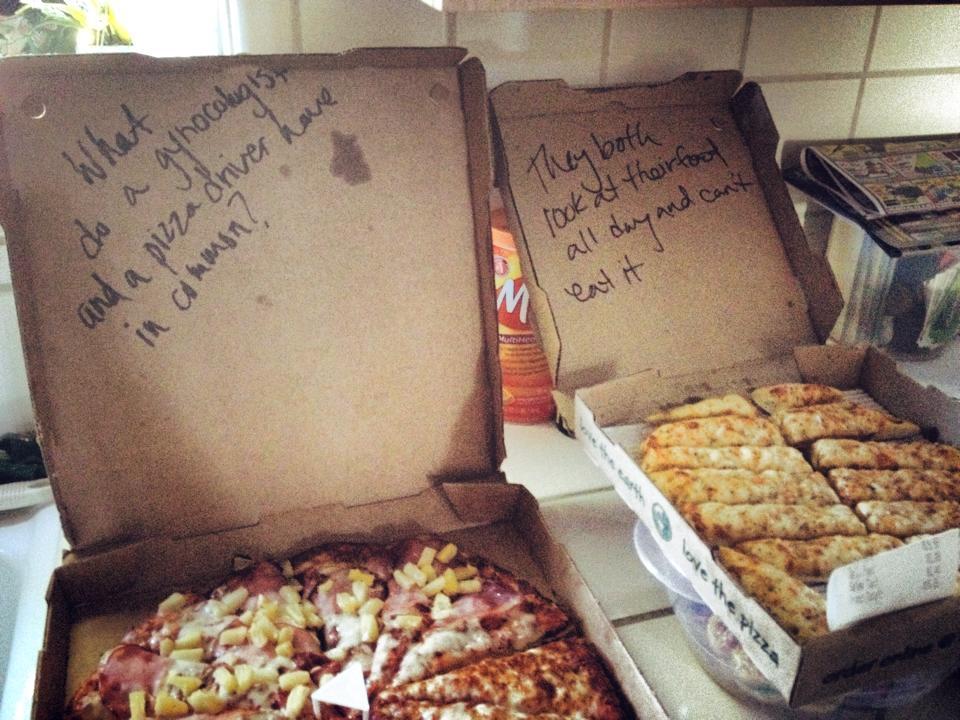 What
do a gynocologist
and a pizza driver have
in common?
They both
look at their food
all day and can't
eat it
M
love the earth
love the pizza
order online @